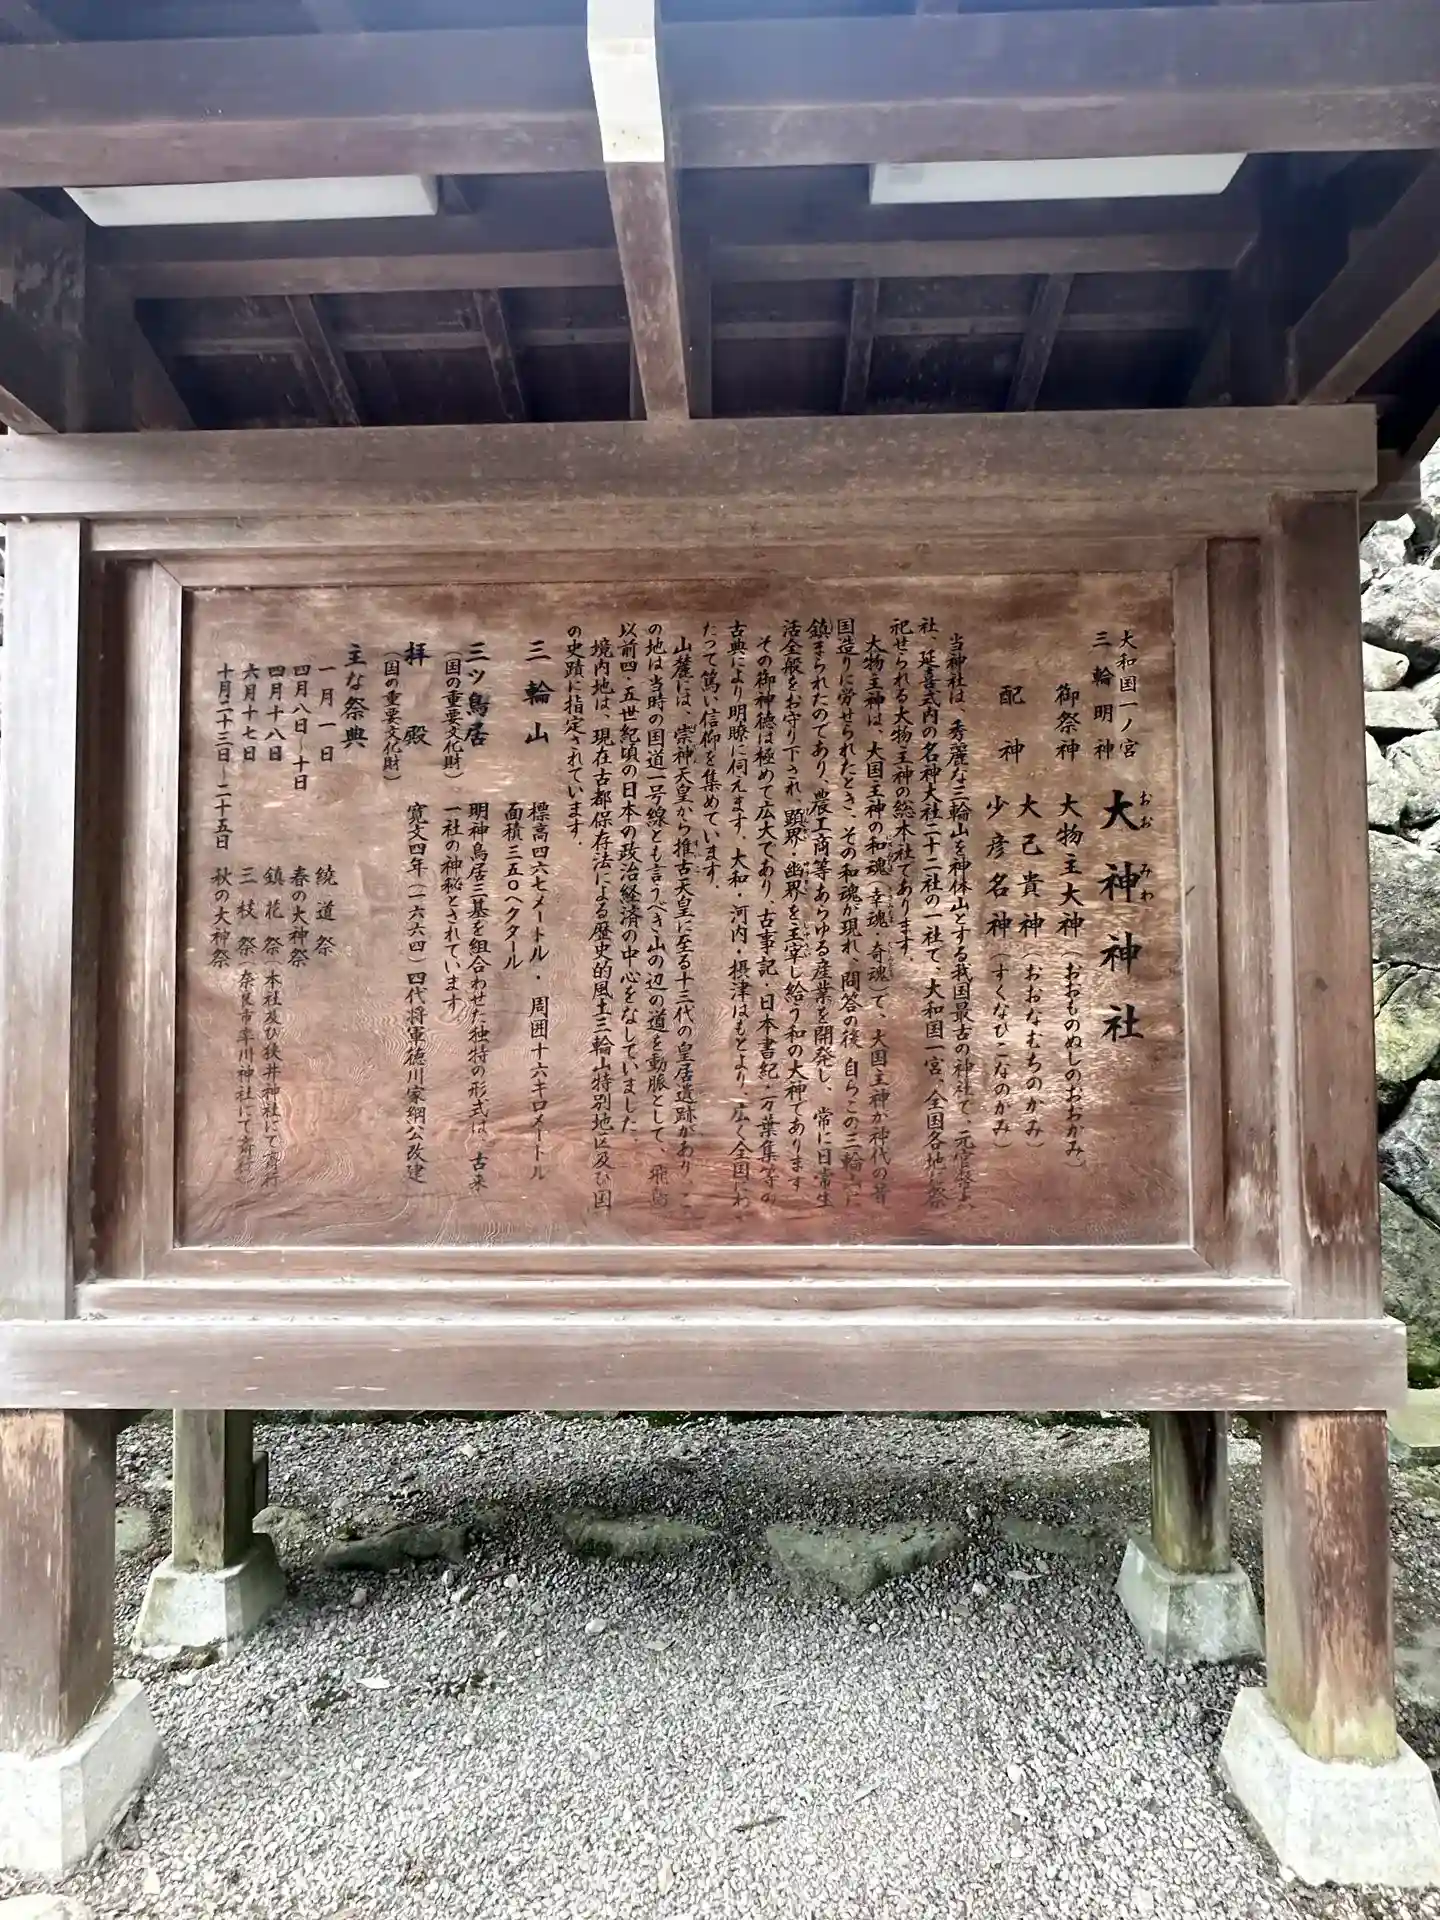 大和国一ノ宮
三輪明神
大神神社
おお みわ
御祭神 大物主大神(おおものぬしのおおかみ)
配神 大己貴神(おおなむちのかみ)
少彦名神(すくなひこなのかみ)
当神社は、秀麗な三輪山を神体山とする我国最古の神社で、元官幣大
社、延喜式内の名神大社二十二社の一社で、大和国一宮、全国各地に祭
祀せられる大物主神の総本社であります。
大物主神は、大国主神の和魂(幸魂・奇魂)で、大国主神が神代の昔
国造りに労せられたとき、その和魂が現れ、問答の後、自らこの三輪山に
鎮まられたのであり、農工商等あらゆる産業を開発し、常に日常生
活全般をお守り下され、顕界・幽界を主宰し給う和の大神であります。
その御神徳は極めて広大であり、古事記・日本書紀・万葉集等の
古典により明瞭に伺えます。大和・河内・摂津はもとより、広く全国にわ
たつて篤い信仰を集めています。
山麓には、崇神天皇から推古天皇に至る十三代の皇居遺跡があり、こ
の地は当時の国道一号線とも言うべき山の辺の道を動脈として、飛鳥
以前四・五世紀頃の日本の政治経済の中心をなしていました。
境内地は、現在古都保存法による歴史的風土三輪山特別地区及び国
の史蹟に指定されています。
三輪山 標高四六七メートル・周囲十六キロメートル
面積三五〇ヘクタール
三ツ鳥居 明神鳥居三基を組合わせた独特の形式は、古来
(国の重要文化財) 一社の神秘とされています。
拝殿 寛文四年(一六六四)四代将軍徳川家綱公改建
(国の重要文化財)
主な祭典
一月一日 繞道祭
四月八日〜十日 春の大神祭
四月十八日 鎮花祭(本社及び狭井神社にて斎行)
六月十七日 三枝祭(奈良市率川神社にて斎行)
十月二十三日〜二十五日 秋の大神祭